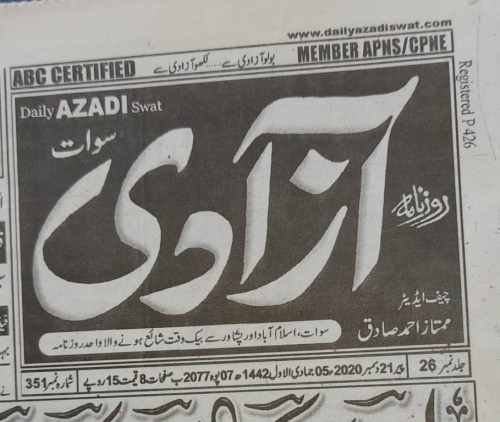 www.dailyazadiswat.com
ABC CERTIFIED
بولو آزادی سے......لکھو آزادی سے
MEMBER APNS/CPNE
Registered P 426
Daily AZADI Swat
سوات
روزنامہ
آزادی
چیف ایڈیٹر
ممتاز احمد صادق
سوات، اسلام آباد اور پشاور سے بیک وقت شائع ہونے والا واحد روزنامہ
جلد نمبر 26
پیر 21 دسمبر 2020ء 05 جمادی الاول 1442ھ 07 پوہ 2077ب صفحات 8 قیمت 15 روپے
شمارہ نمبر 351